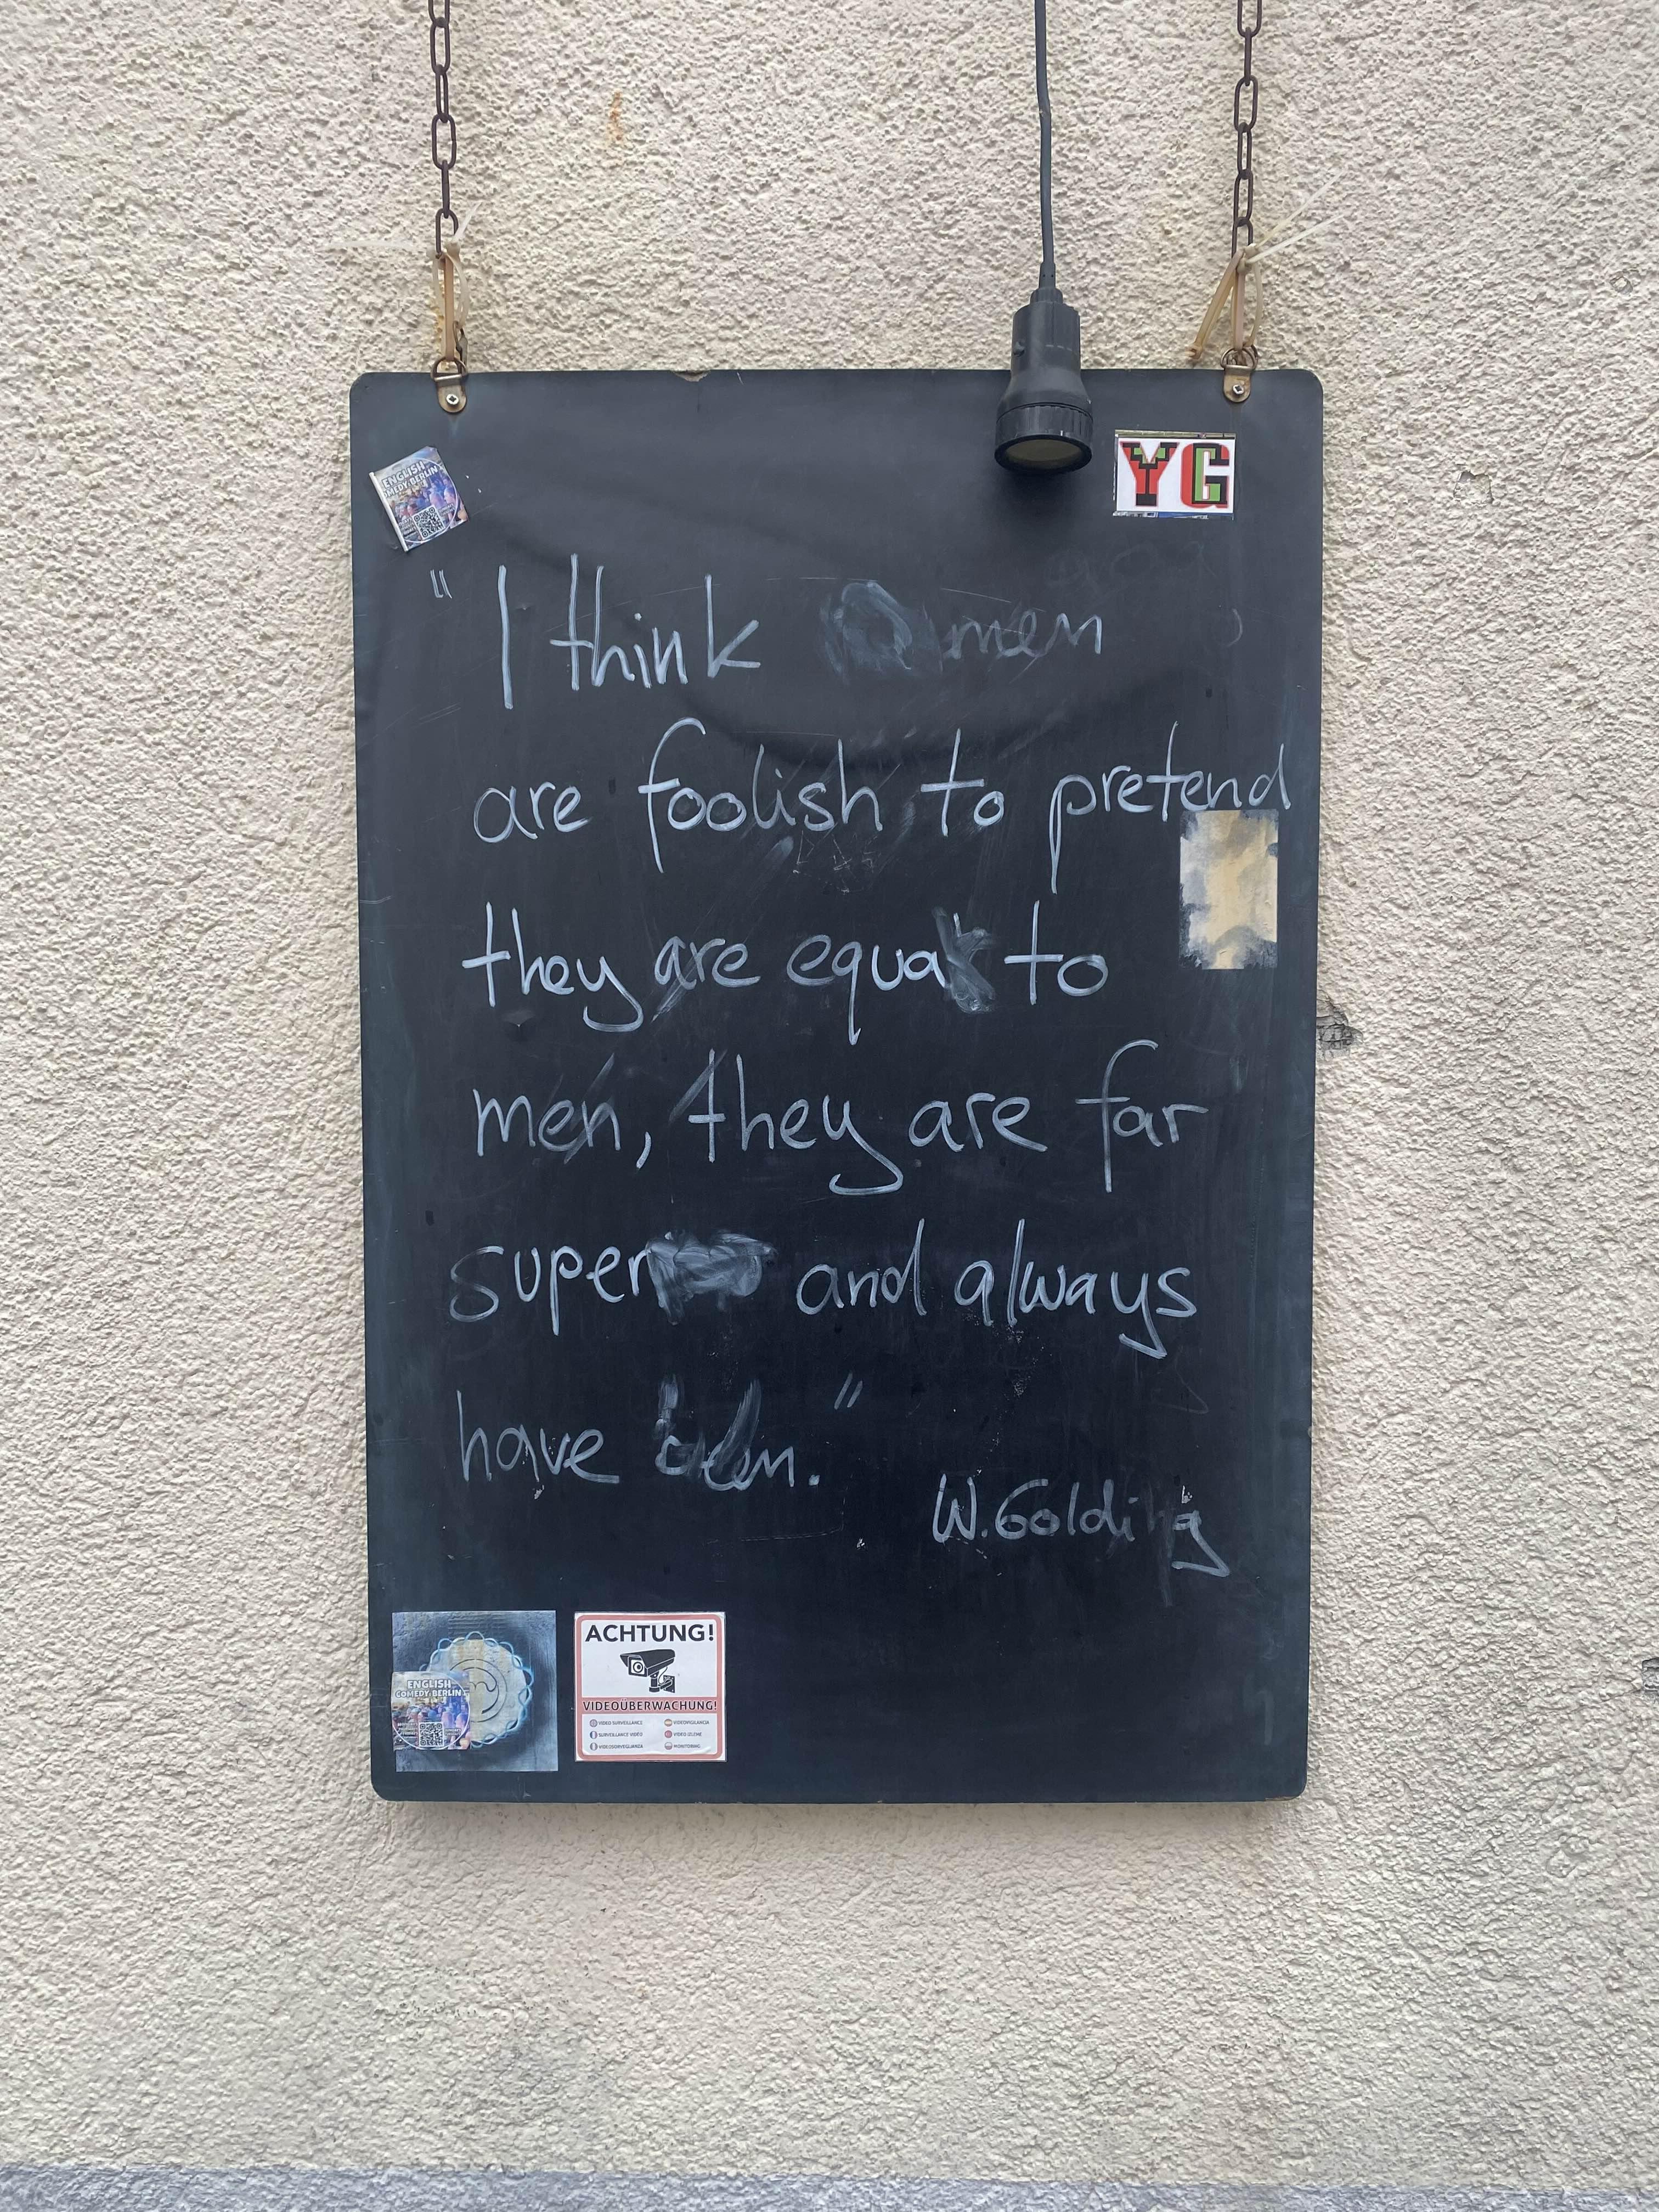 ENGLISH
COMEDY·BERLIN
YG
" I think men
are foolish to pretend
they are equal to
men, they are far
super and always
have been. "
W. Golding
ENGLISH
COMEDY·BERLIN
ACHTUNG!
VIDEOÜBERWACHUNG!
VIDEO SURVEILLANCE
VIDEOVIGILANCIA
SURVEILLANCE VIDÉO
VIDEO IZLEME
VIDEOSORVEGLIANZA
MONITORING